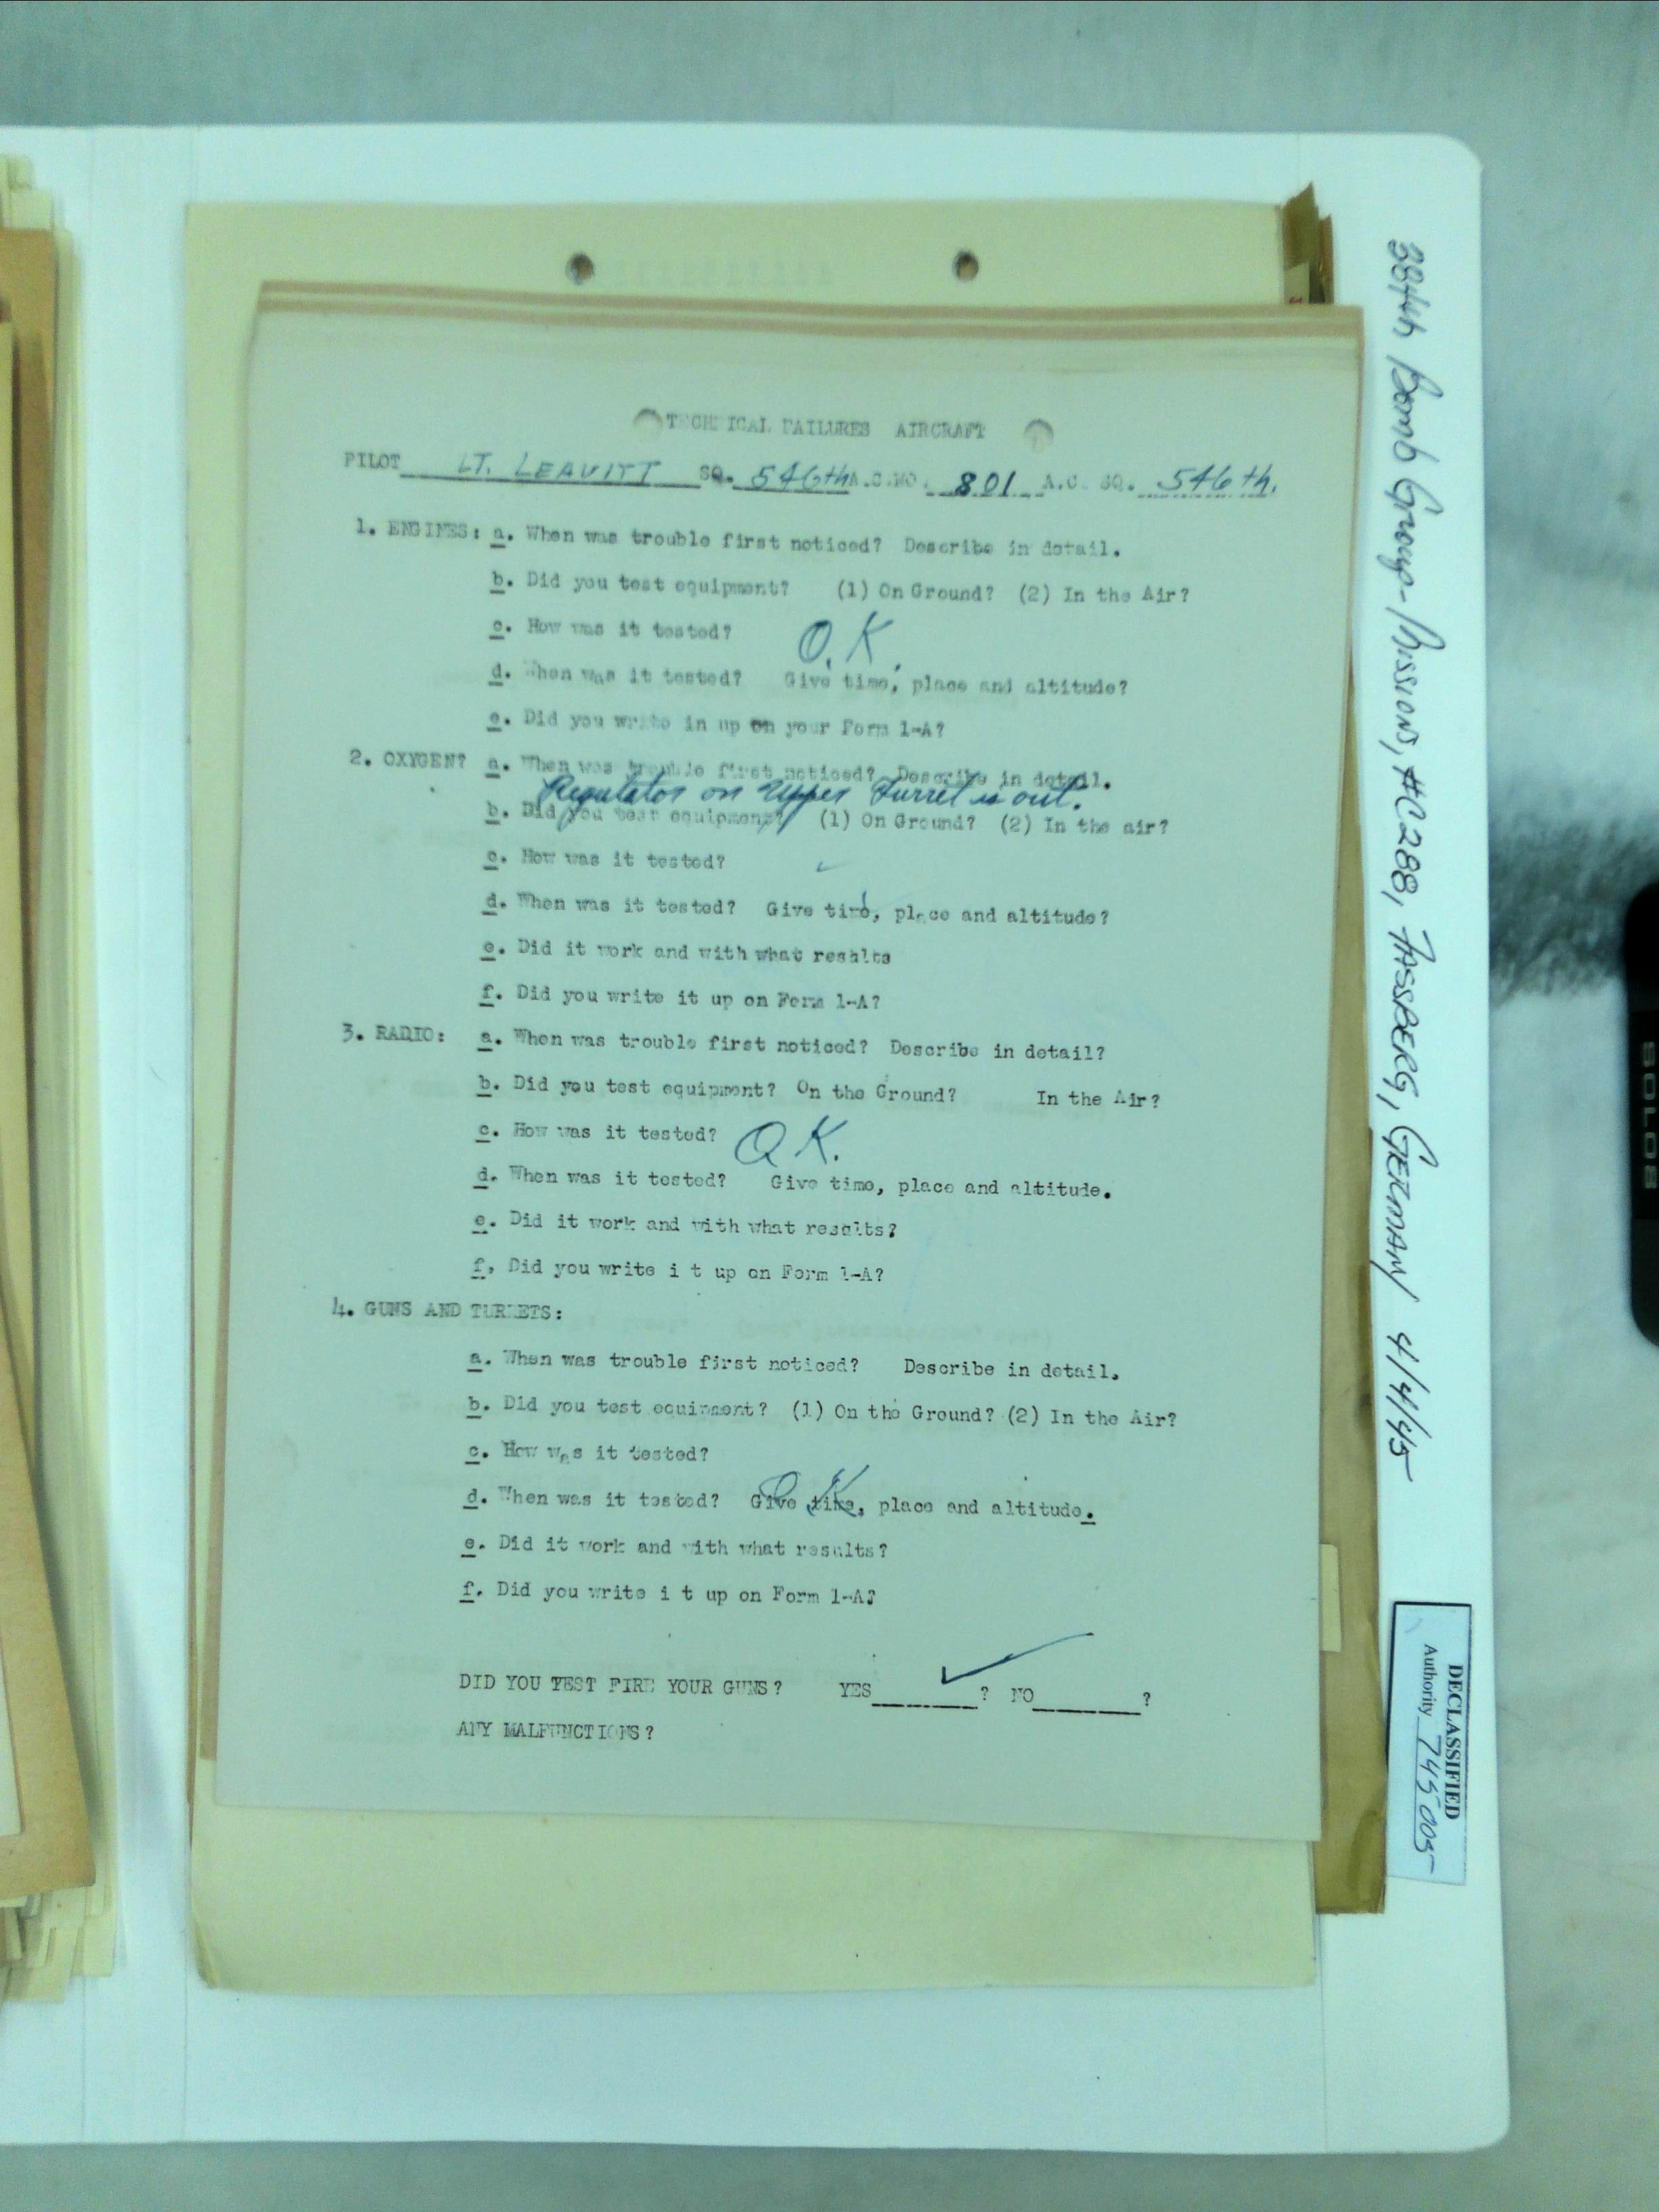 TECHNICAL FAILURES AIRCRAFT
PILOT LT. LEAVITT SQ. 546th A.C.NO. 801 A.C. SQ. 546th.
1. ENGINES: a. When was trouble first noticed? Describe in detail.
b. Did you test equipment? (1) On Ground? (2) In the Air?
c. How was it tested?
O.K.
d. When was it tested? Give time, place and altitude?
e. Did you write in up on your Form 1-A?
2. OXYGEN? a. When was trouble first noticed? Describe in detail.
Regulator on Upper Turret is out.
b. Did you test equipment? (1) On Ground? (2) In the air?
c. How was it tested?
d. When was it tested? Give time, place and altitude?
e. Did it work and with what results
f. Did you write it up on Form 1-A?
3. RADIO: a. When was trouble first noticed? Describe in detail?
b. Did you test equipment? On the Ground? In the Air?
c. How was it tested? O.K.
d. When was it tested? Give time, place and altitude.
e. Did it work and with what results?
f. Did you write i t up on Form 1-A?
4. GUNS AND TURRETS:
a. When was trouble first noticed? Describe in detail.
b. Did you test equipment? (1) On the Ground? (2) In the Air?
c. How was it tested?
O.K.
d. When was it tested? Give time, place and altitude.
e. Did it work and with what results?
f. Did you write i t up on Form 1-A?
DID YOU TEST FIRE YOUR GUNS? YES ✓ ? NO ?
ANY MALFUNCTIONS?
384th Bomb Group-Missions, #C288, FASSBERG, GERMANY 4/4/45
DECLASSIFIED
Authority 745005
SOLO8